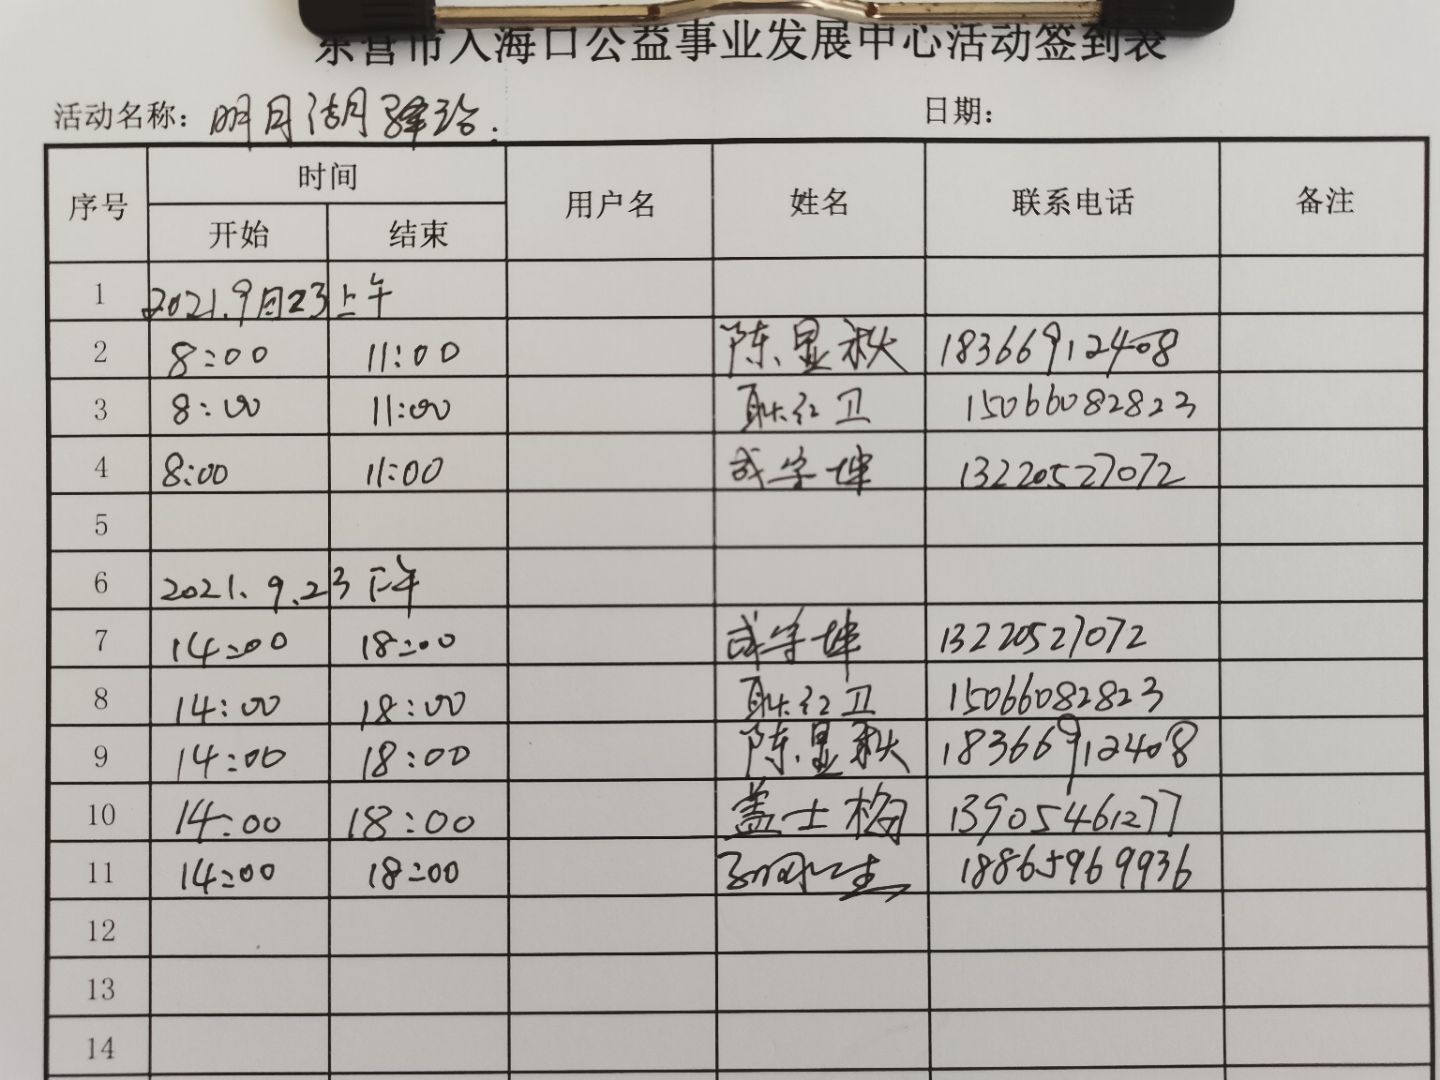 东营市入海口公益事业发展中心活动签到表
活动名称：明月湖驿站.
日期：
序号 时间 用户名 姓名 联系电话 备注
开始 结束
1 2021.9月23上午
2 8:00 11:00 陈显秋 18366912408
3 8:00 11:00 耿红卫 15066082823
4 8:00 11:00 成学坤 13220527072
5
6 2021.9.23下午
7 14:00 18:00 成学坤 13220527072
8 14:00 18:00 耿红卫 15066082823
9 14:00 18:00 陈显秋 18366912408
10 14:00 18:00 盖士梅 13905461277
11 14:00 18:00 18865969936
12
13
14